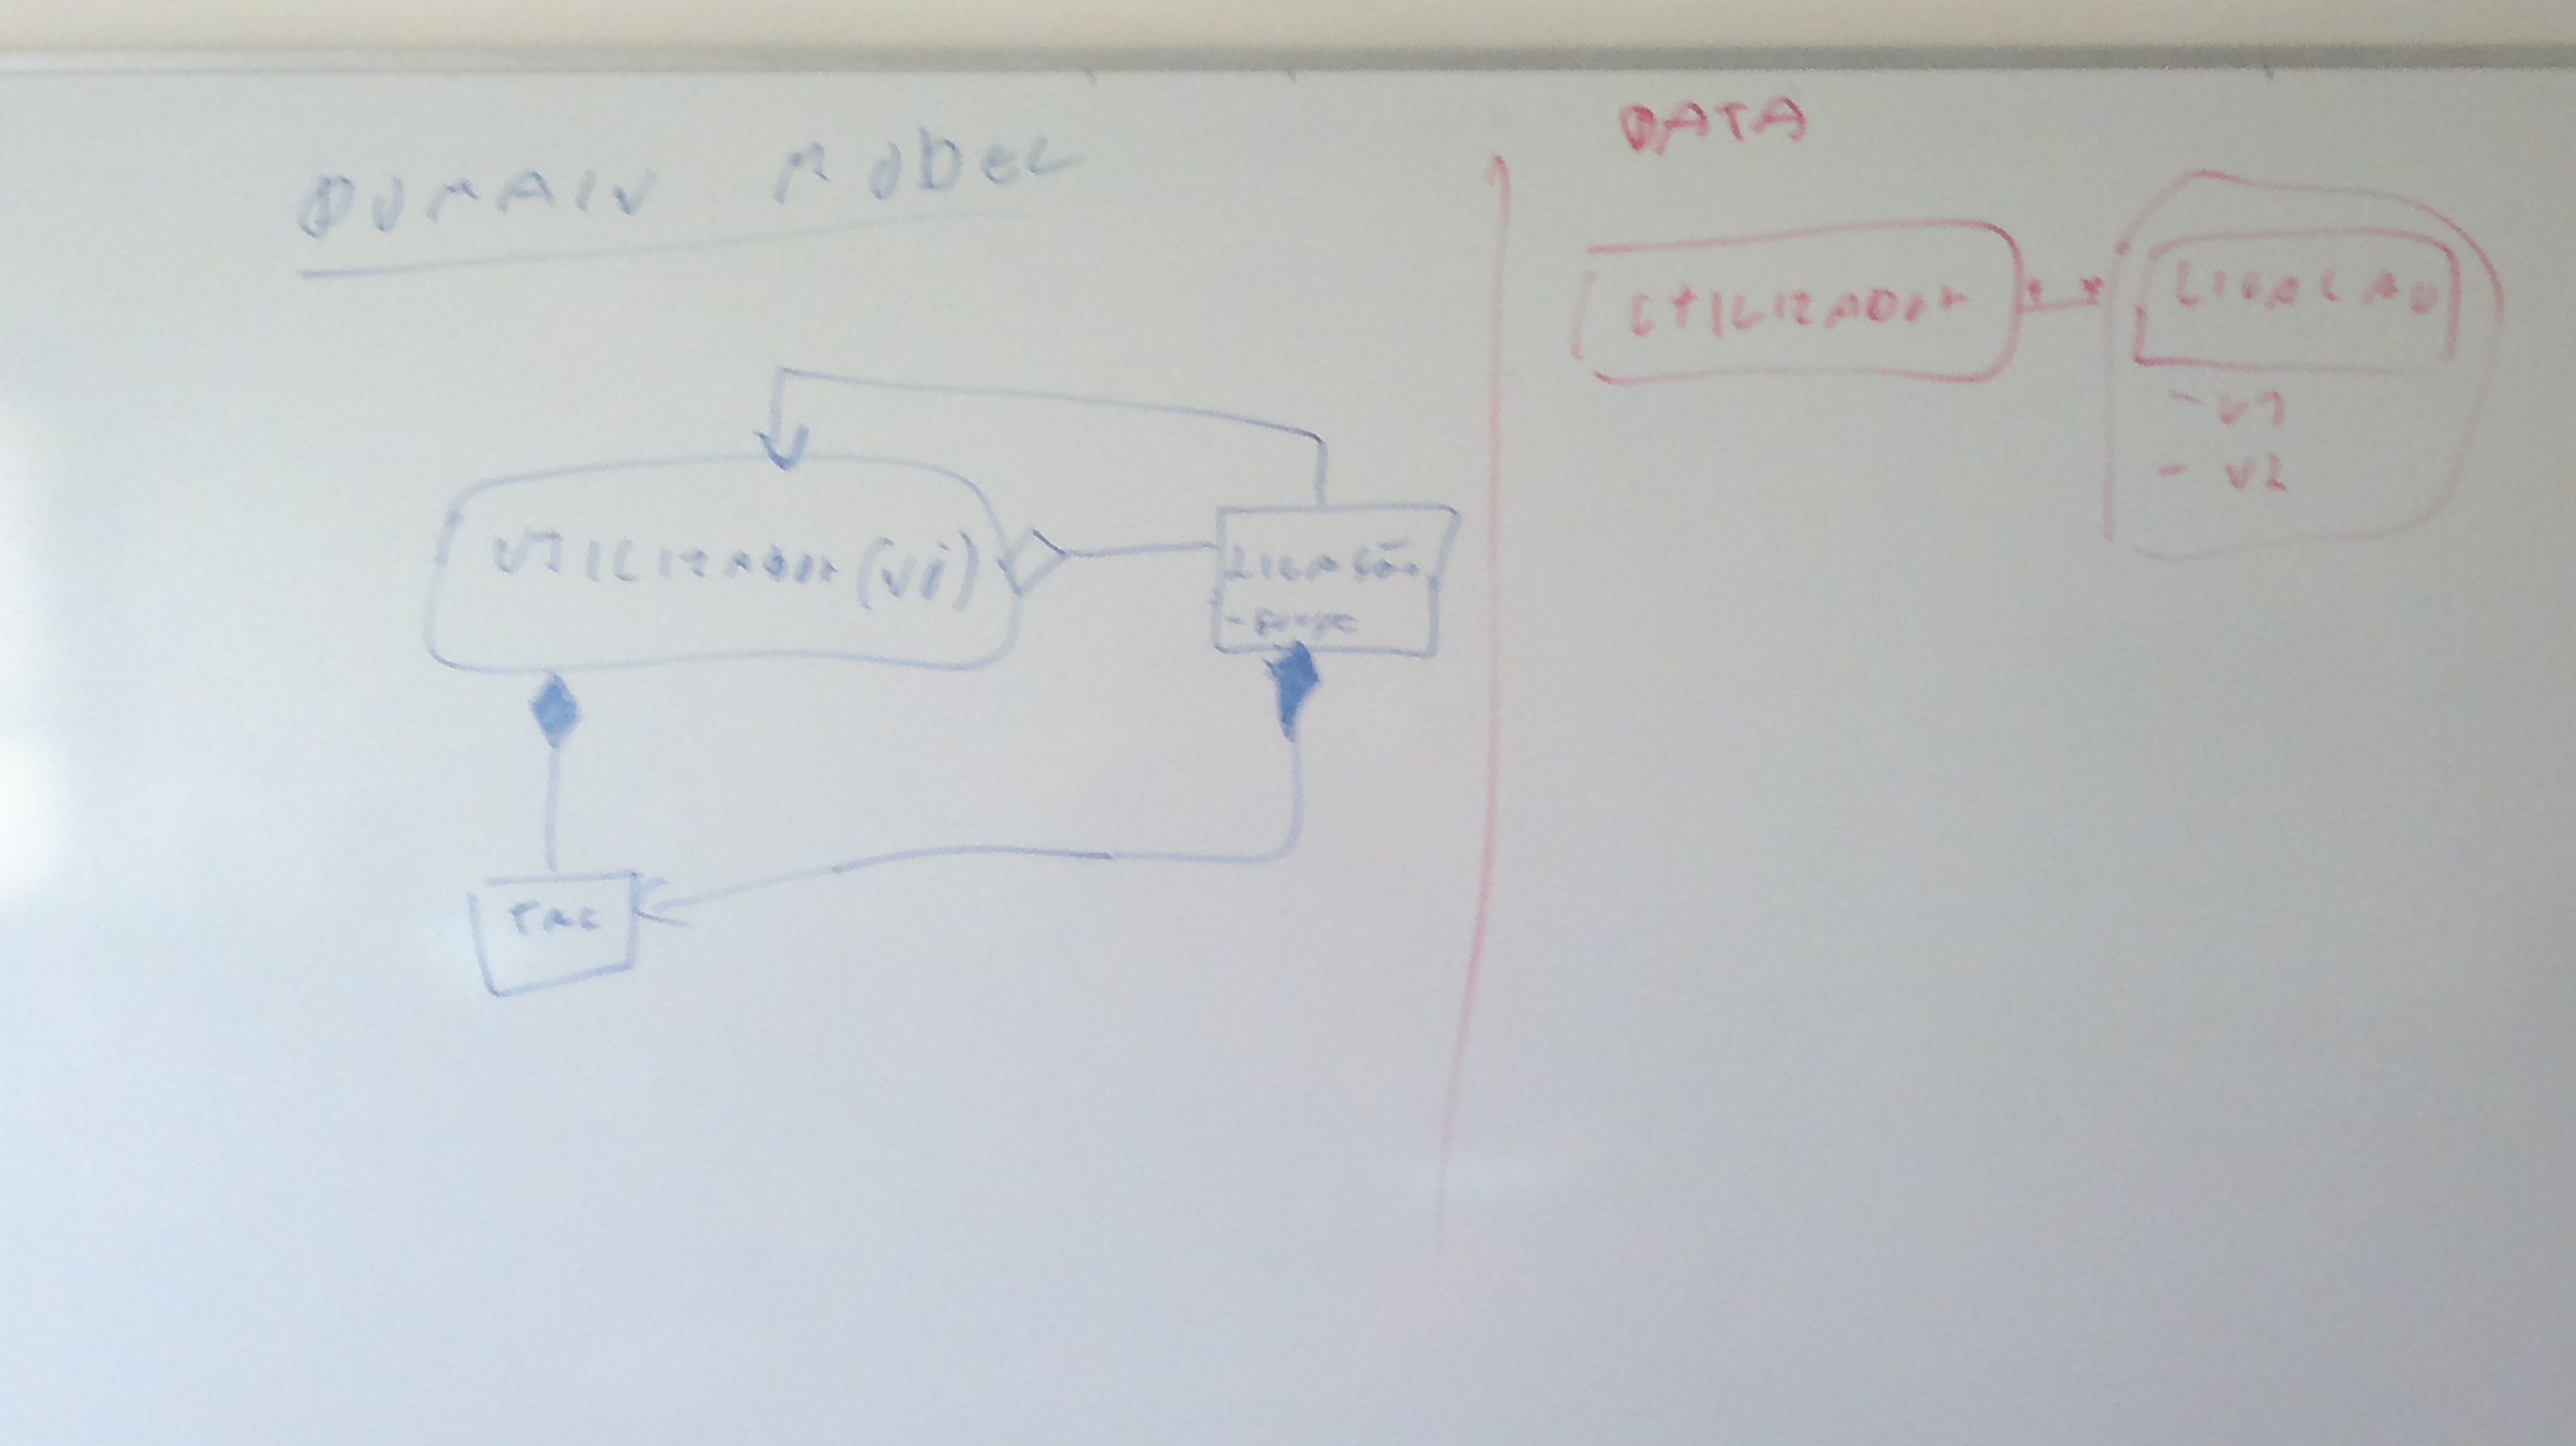 DOMAIN MODEL
UTILIZADOR (V1)
LIGAÇÃO
TAG
DATA
UTILIZADOR
LIGACAO
- V1
- V2